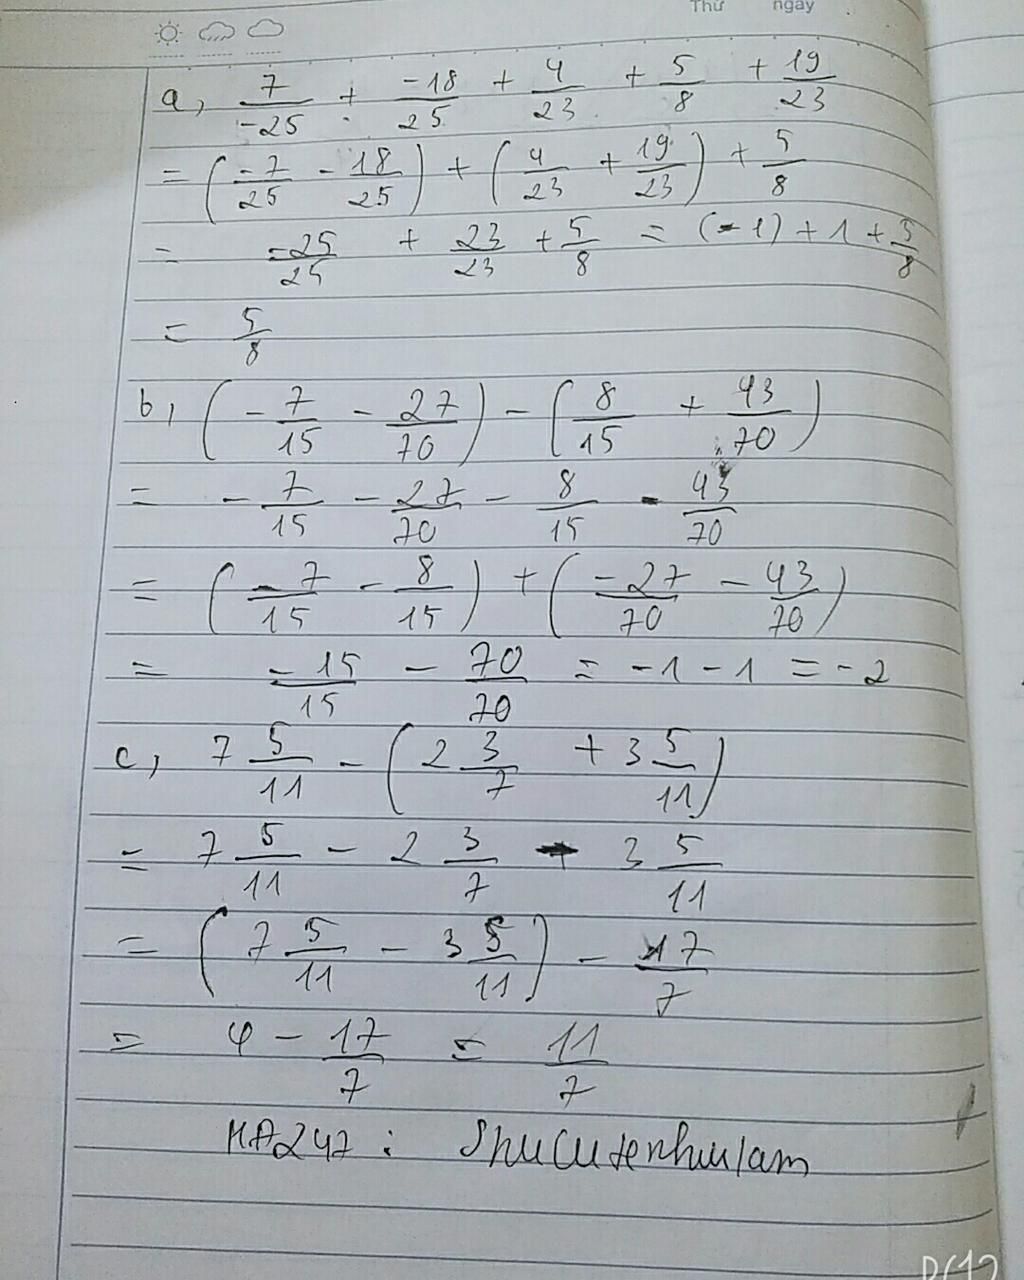 Thứ ngày
a, 7/-25 + -18/25 + 4/23 + 5/8 + 19/23
= (-7/25 - 18/25) + (4/23 + 19/23) + 5/8
= -25/25 + 23/23 + 5/8 = (-1) + 1 + 5/8
= 5/8
b, (-7/15 - 27/70) - (8/15 + 43/70)
= -7/15 - 27/70 - 8/15 - 43/70
= (-7/15 - 8/15) + (-27/70 - 43/70)
= -15/15 - 70/70 = -1 - 1 = -2
c, 7 5/11 - (2 3/7 + 3 5/11)
= 7 5/11 - 2 3/7 - 3 5/11
= (7 5/11 - 3 5/11) - 17/7
= 4 - 17/7 = 11/7